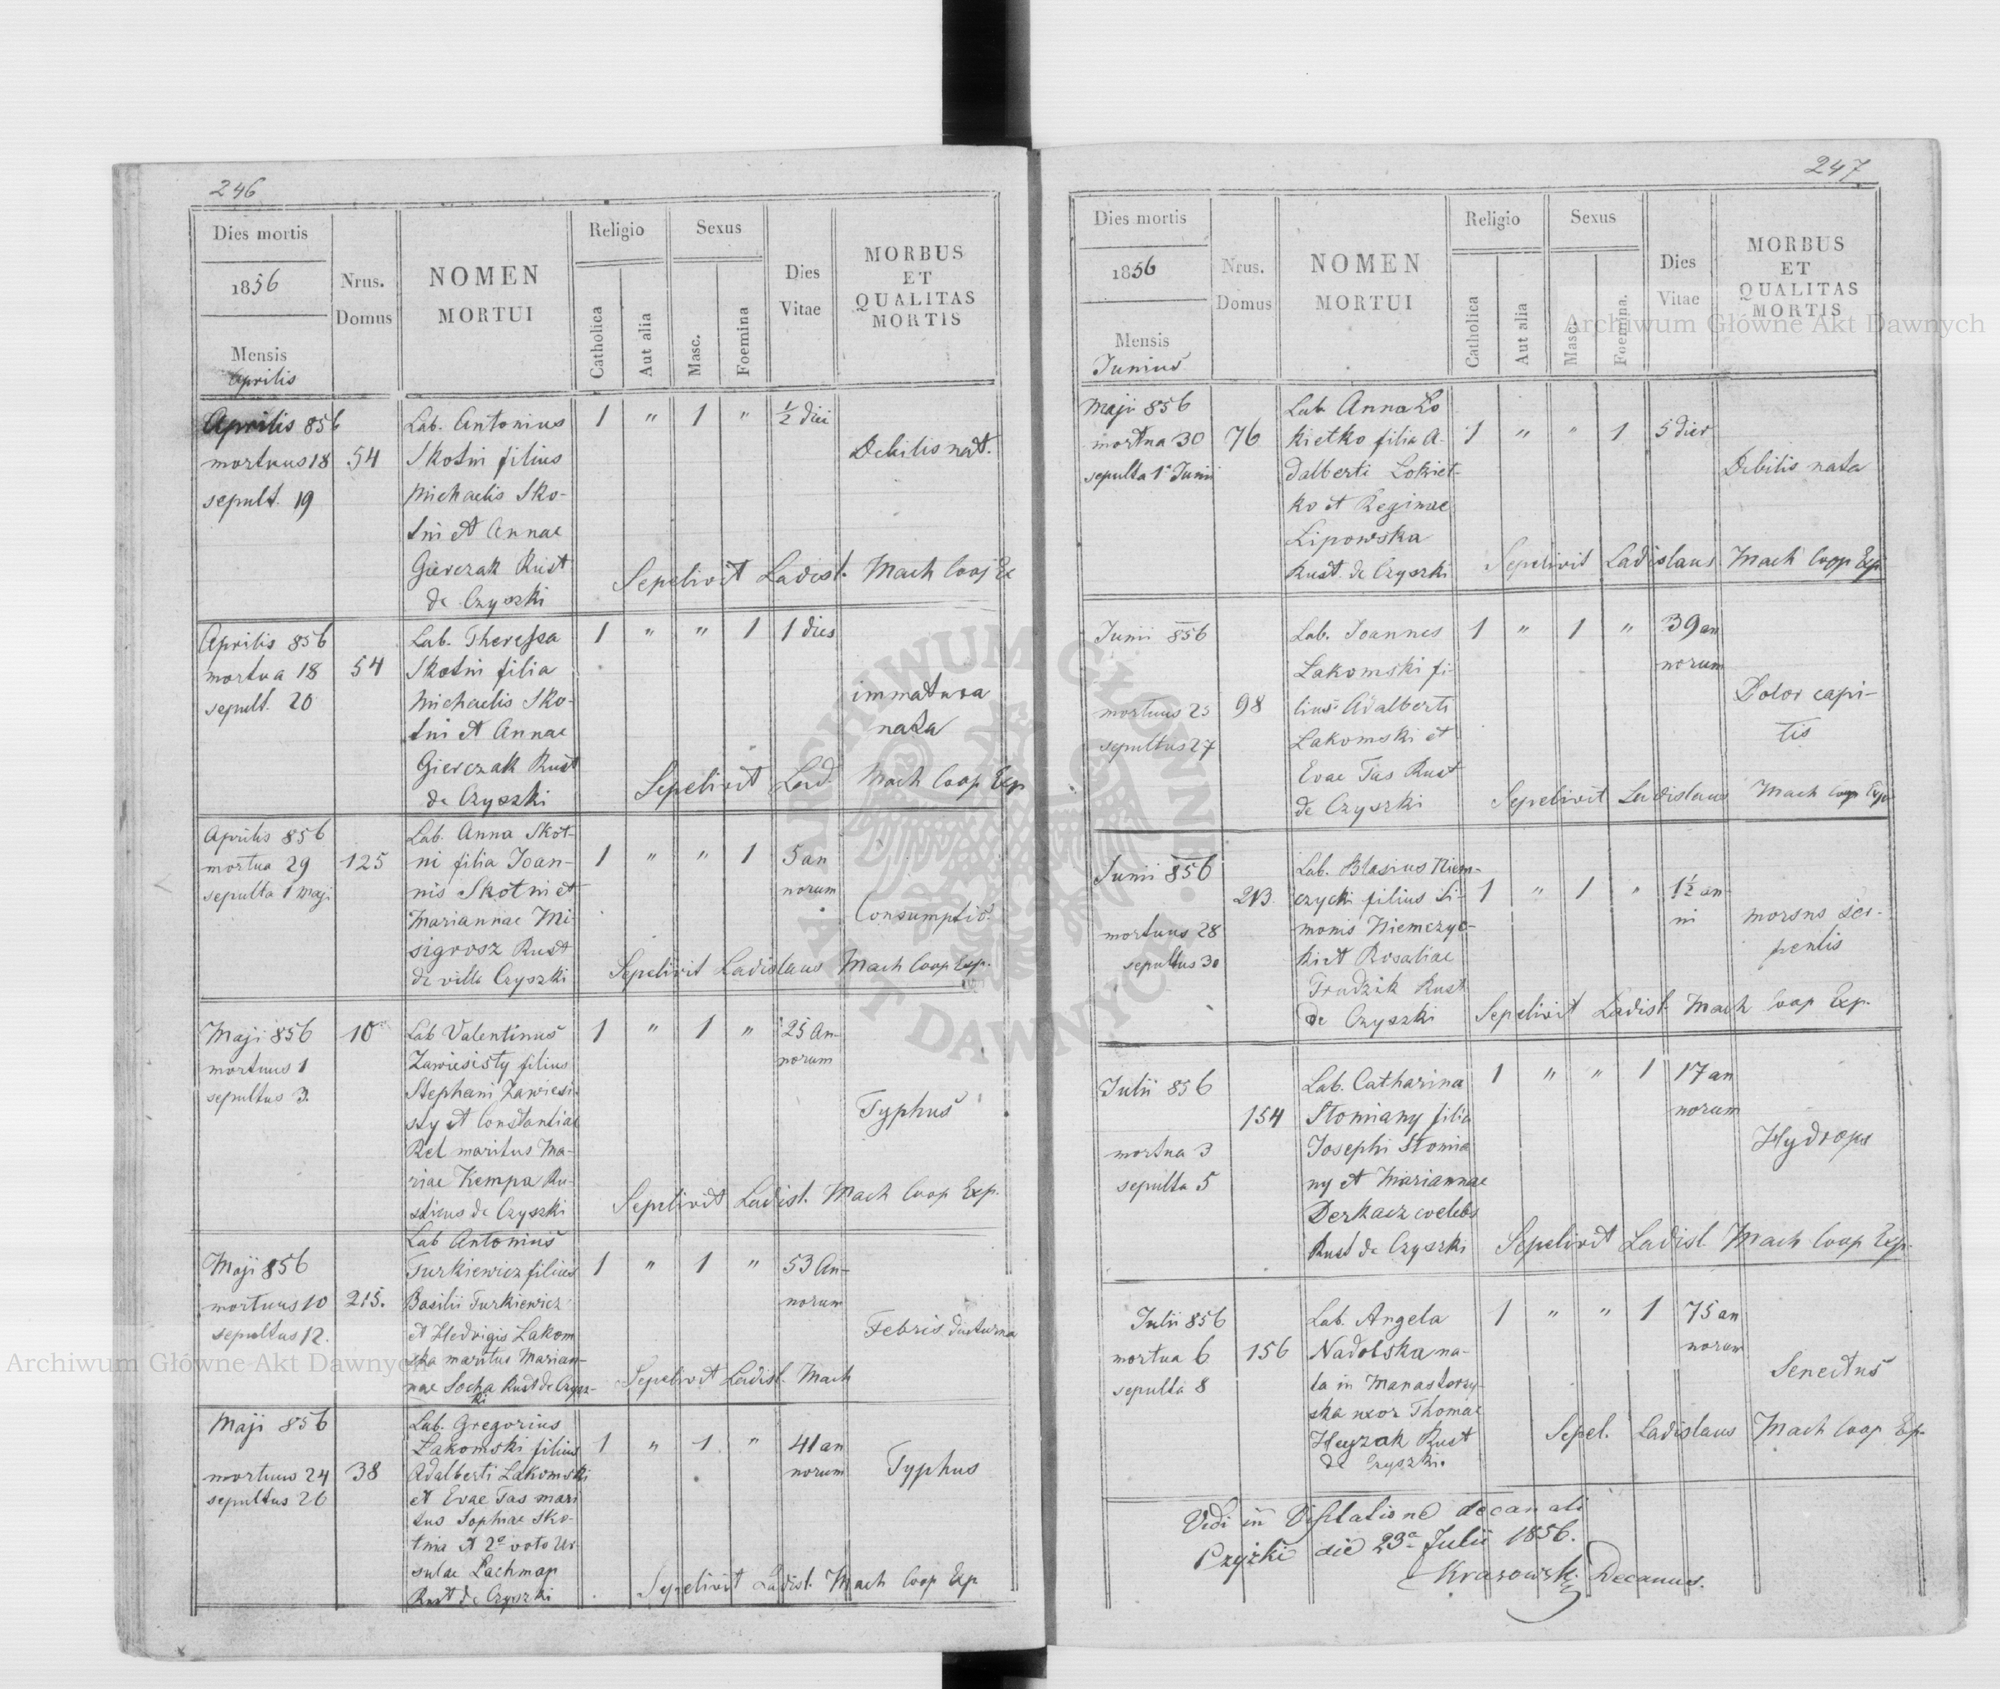 246
Dies mortis
1856
Mensis
Aprilis
Nrus.
Domus
NOMEN
MORTUI
Religio
Catholica
Aut alia
Sexus
Masc.
Foemina
Dies
Vitae
MORBUS
ET
QUALITAS
MORTIS
Aprilis 856
mortuus 18
sepult. 19
54
Lab. Antonius
Skotni filius
Michaelis Sko-
tni et Annae
Gierczak Rust
de Czyszki
1 " 1 " ½ diei
Debilis nat.
Sepelivit Ladisl. Mach Coop Ex
Aprilis 856
mortua 18
sepult. 20
54
Lab. Theressa
Skotni filia
Michaelis Sko-
tni et Annae
Gierczak Rust
de Czyszki
1 " " 1 1 dies
immatura
nata
Sepelivit Lad. Mach Coop Exp
Aprilis 856
mortua 29
sepulta 1 Maji
125
Lab. Anna Skot-
ni filia Joan-
nis Skotni et
Mariannae Mi-
sigrosz Rust
de villa Czyszki
1 " " 1 5 an
norum
Consumptio
Sepelivit Ladislaus Mach Coop Exp.
Maji 856
mortuus 1
sepultus 3.
10
Lab Valentinus
Zawiesisty filius
Stephani Zawiesi-
sty et Constantiae
Rel maritus Ma-
riae Kempa Ru-
sticus de Czyszki
1 " 1 " 25 An-
norum
Typhus
Sepelivit Ladisl. Mach Coop Exp.
Maji 856
mortuus 10
sepultus 12.
215.
Lab Antonius
Turkiewicz filius
Basilii Turkiewicz
et Hedvigis Lakom
ska maritus Marian-
nae Socha Rust de Czysz-
ki
1 " 1 " 53 An-
norum
Febris diuturna
Sepelivit Ladisl. Mach
Maji 856
mortuus 24
sepultus 26
38
Lab. Gregorius
Lakomski filius
Adalberti Lakomski
et Evae Tas mari
tus Sophiae Sko-
tnia et 2º voto Ur
sulae Lachman
Rust de Czyszki
1 " 1 " 41 an
norum
Typhus
Sepelivit Ladisl. Mach Coop Exp
247
Dies mortis
1856
Mensis
Junius
Nrus.
Domus
NOMEN
MORTUI
Religio
Catholica
Aut alia
Sexus
Masc.
Foemina.
Dies
Vitae
MORBUS
ET
QUALITAS
MORTIS
Maji 856
mortua 30
sepulta 1ª Junii
76
Lab. Anna Lo
kietko filia A-
dalberti Lokiet-
ko et Reginae
Lipowska
Rust. de Czyszki
1 " " 1 5 dier
Debilis nata
Sepelivit Ladislaus Mach Coop Exp
Junii 856
mortuus 25
sepultus 27
98
Lab. Joannes
Lakomski fi-
lius Adalberti
Lakomski et
Evae Tas Rust
de Czyszki
1 " 1 " 39 an
norum
Dolor capi-
tis
Sepelivit Ladislaus Mach Coop Exp
Junii 856
mortuus 28
sepultus 30
213
Lab. Blasius Niem-
czycki filius Si-
monis Niemczyc-
ki et Rosaliae
Trudzik Rust
de Czyszki
1 " 1 " 1½ an-
ni
morsus ser-
pentis
Sepelivit Ladisl. Mach Coop Exp.
Julii 856
mortua 3
sepulta 5
154
Lab. Catharina
Stomiany filia
Josephi Stomia
ny et Mariannae
Derkacz coelebs
Rust de Czyszki
1 " " 1 17 an
norum
Hydrops
Sepelivit Ladisl. Mach Coop Exp.
Julii 856
mortua 6
sepulta 8
156
Lab. Angela
Nadolska na-
ta in Manastorzy-
ska uxor Thomae
Heyzak Rust
de Czyszki.
1 " " 1 75 an
norum
Senectus
Sepel. Ladislaus Mach Coop Exp.
Vidi in Visitatione decanali
Czyżki die 23ª Julii 1856.
Krasowski Decanus.
Archiwum Główne Akt Dawnych
Archiwum Główne Akt Dawnych
ARCHIWUM GŁÓWNE AKT DAWNYCH